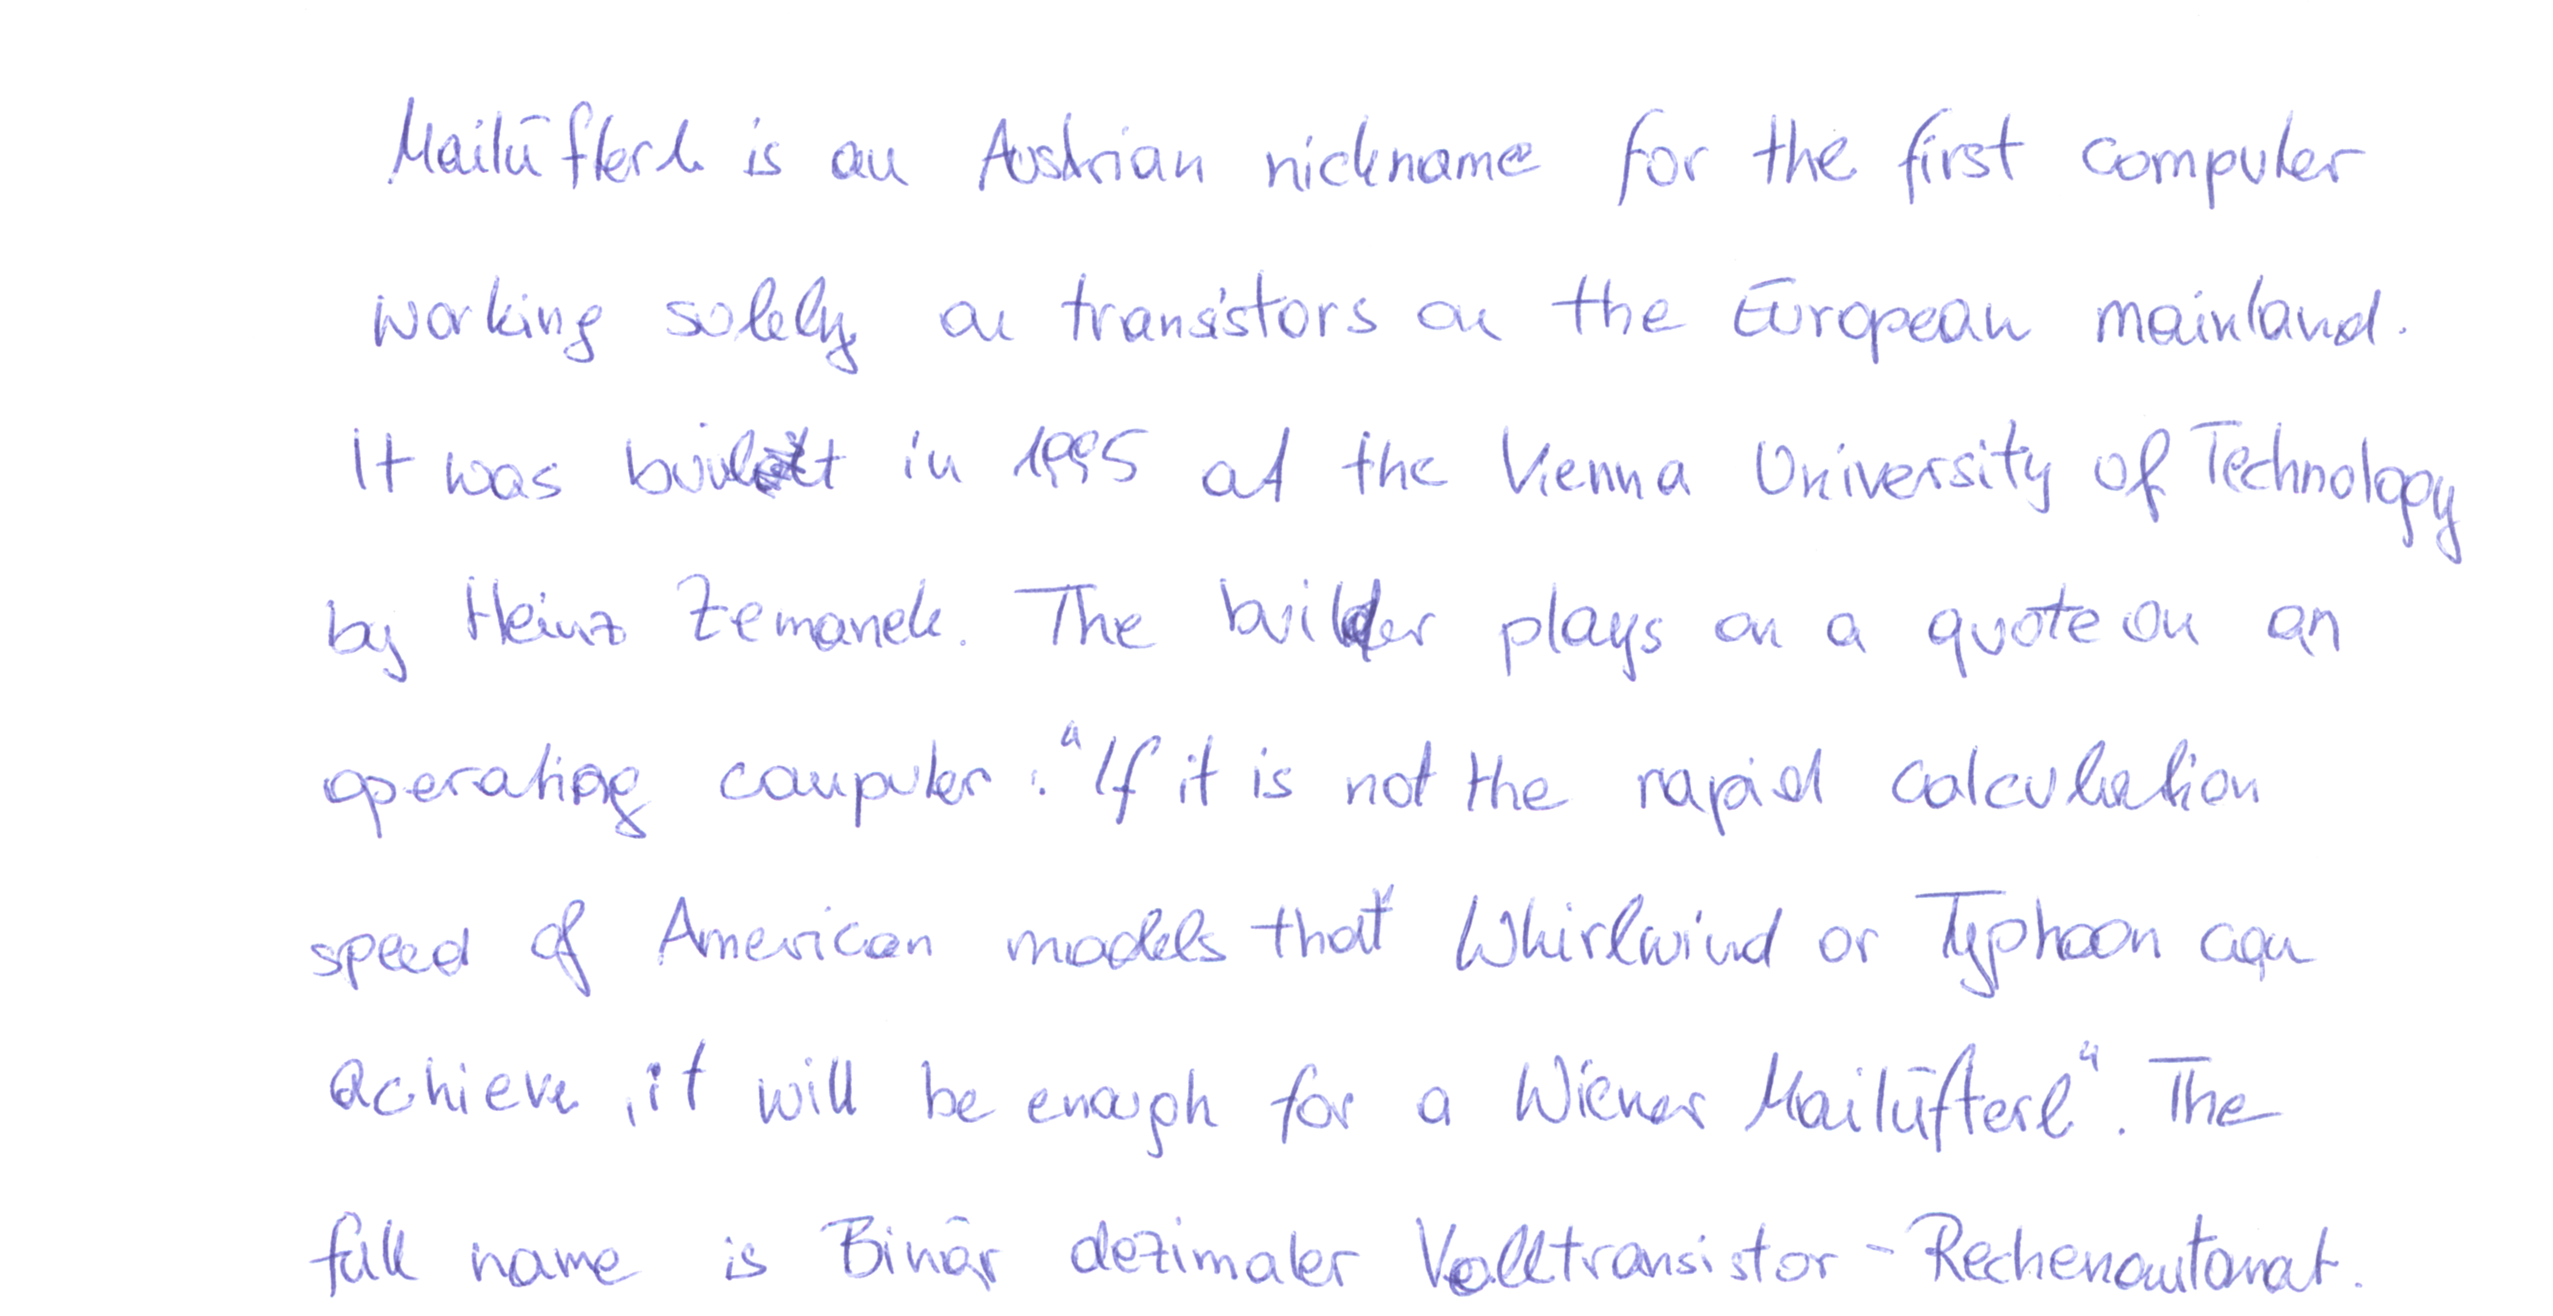 Mailüfterl is an Austrian nickname for the first computer
working solely on transistors on the European mainland.
It was built in 1995 at the Vienna University of Technology
by Heinz Zemanek. The builder plays on a quote on an
operating computer: "If it is not the rapid calculation
speed of American models that Whirlwind or Typhoon can
achieve, it will be enough for a Wiener Mailüfterl". The
full name is Binär dezimaler Volltransistor-Rechenautomat.